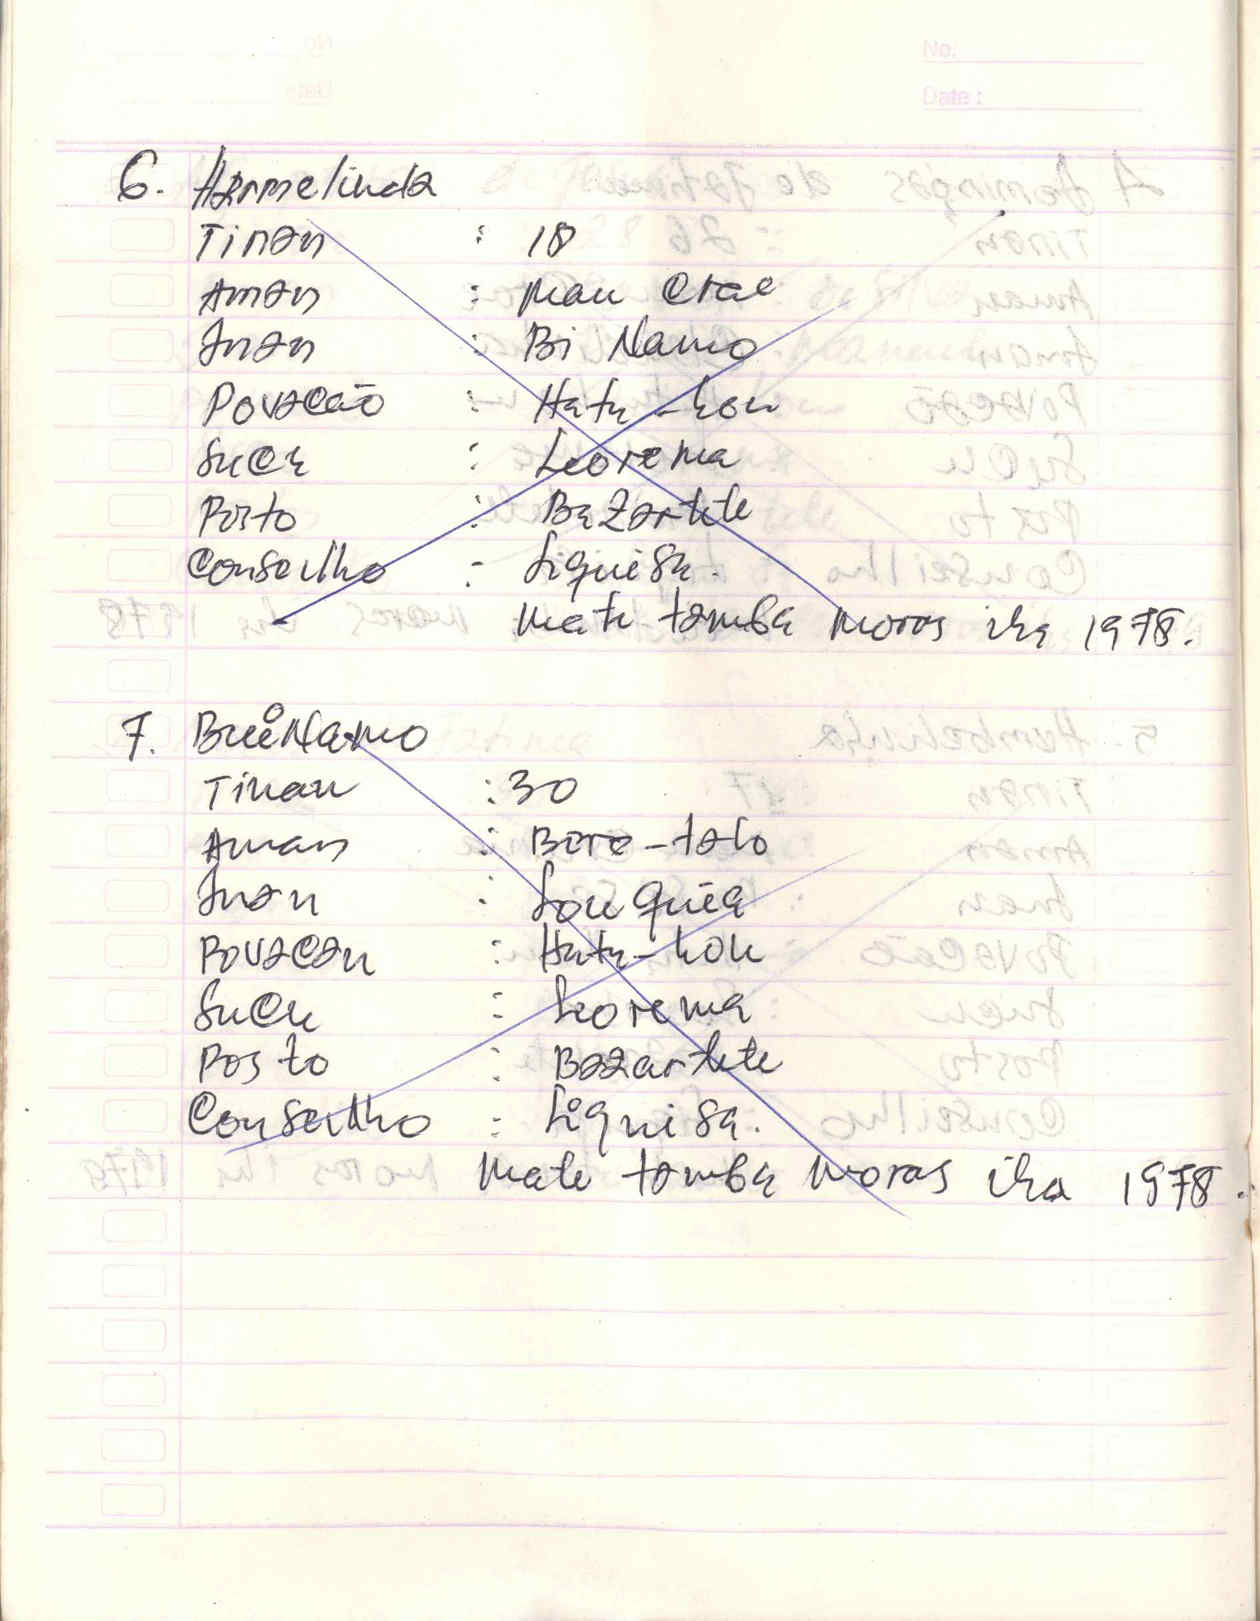 No.
Date :
6. Hermelinda
Tinan : 18
Aman : Mau Crae
Inan : Bi Namo
Povacão : Hatu-hou
Sucu : Leorema
Posto : Bazartete
Conselho : Liquisa.
Mate tamba moras iha 1978.
7. Buinamo
Tinan : 30
Aman : Bere-talo
Inan : Lou quiea
Povacan : Hatu-hou
Sucu : Leorema
Posto : Bazartete
Conselho : Liquisa.
Mate tamba moras iha 1978.